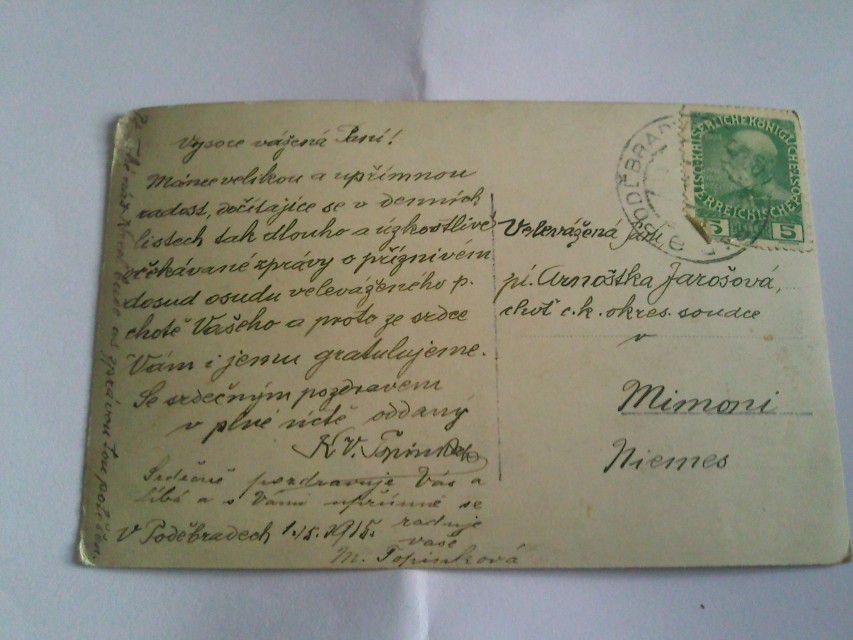 Vysoce vážená Paní!
Máme velikou a upřímnou
radost, dočítajíce se v denních
listech tak dlouho a úzkostlivě
očekávané zprávy o příznivém
dosud osudu veleváženého p.
chotě Vašeho a proto ze srdce
Vám i jemu gratulujeme.
Se srdečným pozdravem
v plné úctě oddaný
K V. Topinka
Srdečně pozdravuje Vás a
líbá a s Vámi upřímně se
raduje
vaše
V Poděbradech 1./5. 1915.
M. Topinková
Velevážená paní
pí. Arnoštka Jarošová,
choť c. k. okres. soudce
v
Mimoni
Niemes
PODĚBRAD
KAISERLICHE KÖNIGLICHE
ÖSTERREICHISCHE POST
5 5